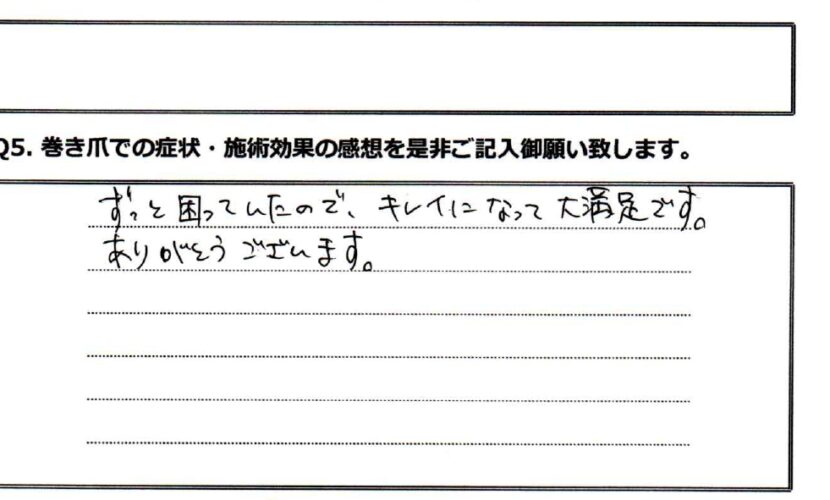 Q5. 巻き爪での症状・施術効果の感想を是非ご記入御願い致します。
ずっと困っていたので、キレイになって大満足です。
ありがとうございます。